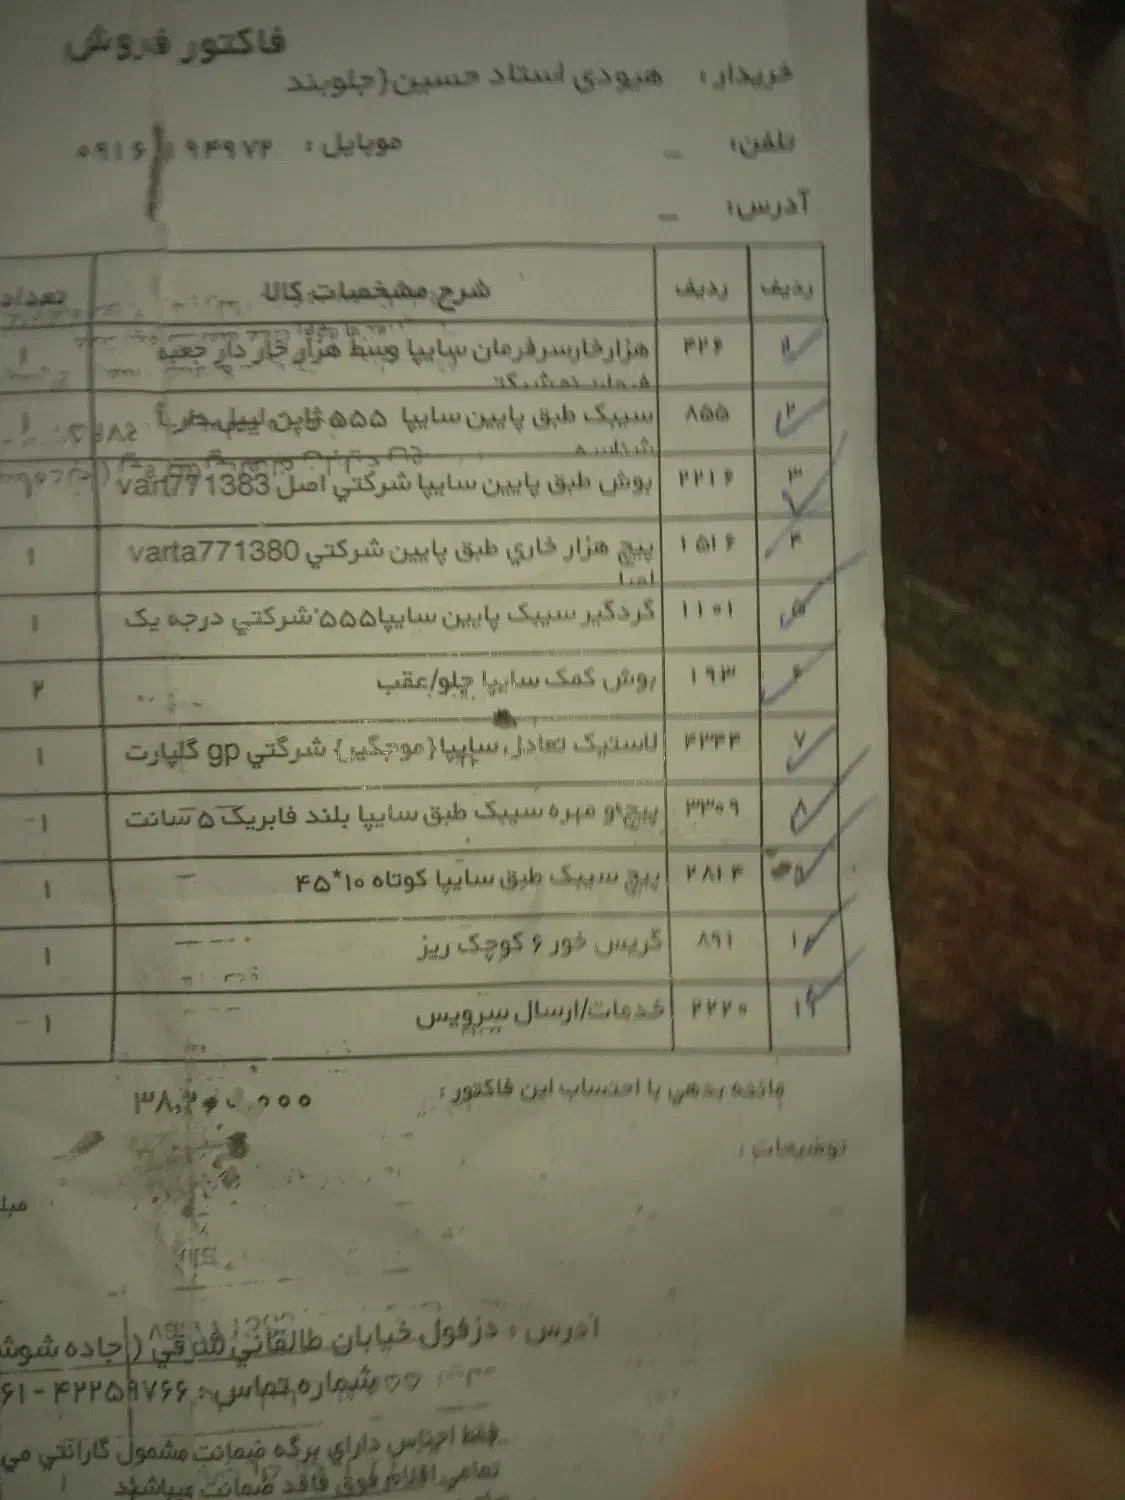 فاکتور فروش
خریدار: هیودی استاد حسین(جلوبند
تلفن: - موبایل: ۰۹۱۶ ۱۹۴۹۷۲
آدرس: -
ردیف ردیف شرح مشخصات کالا تعداد
۱ ۴۲۶ هزارخارسرفرمان سایپا وسط هزار خار دار جعبه ۱
۲ ۸۵۵ سیبک طبق پایین سایپا ۵۵۵ ۱
شناسه
۳ ۲۲۱۶ بوش طبق پایین سایپا شرکتي اصل vart771383 ۱
۴ ۱۵۱۶ پیچ هزار خاري طبق پایین شرکتي varta771380 ۱
اصل
۵ ۱۱۰۱ گردگیر سیبک پایین سایپا۵۵۵ شرکتي درجه یک ۱
۶ ۱۹۳ بوش کمک سایپا جلو/عقب ۲
۷ ۴۳۴۴ لاستیک تعادل سایپا(موجگیر) شرکتي gp گلپارت ۱
۸ ۳۳۰۹ پیچ و مهره سیبک طبق سایپا بلند فابریک ۵ سانت ۱
۲۸۱۴ پیچ سیبک طبق سایپا کوتاه ۱۰*۴۵ ۱
۱۰ ۸۹۱ گریس خور ۶ کوچک ریز ۱
۲۲۲۰ خدمات/ارسال سرویس ۱
مانده بدهي با احتساب این فاکتور: ۳۸,۲۰۰,۰۰۰
توضیحات:
مبل
آدرس: دزفول خیابان طالقاني شرقي (جاده شوش
شماره تماس: ۴۲۲۵۹۷۶۶-۶۱
فقط اجناس داراي برگه ضمانت مشمول گارانتي مي
تمامي اقلام فوق فاقد ضمانت میباشند